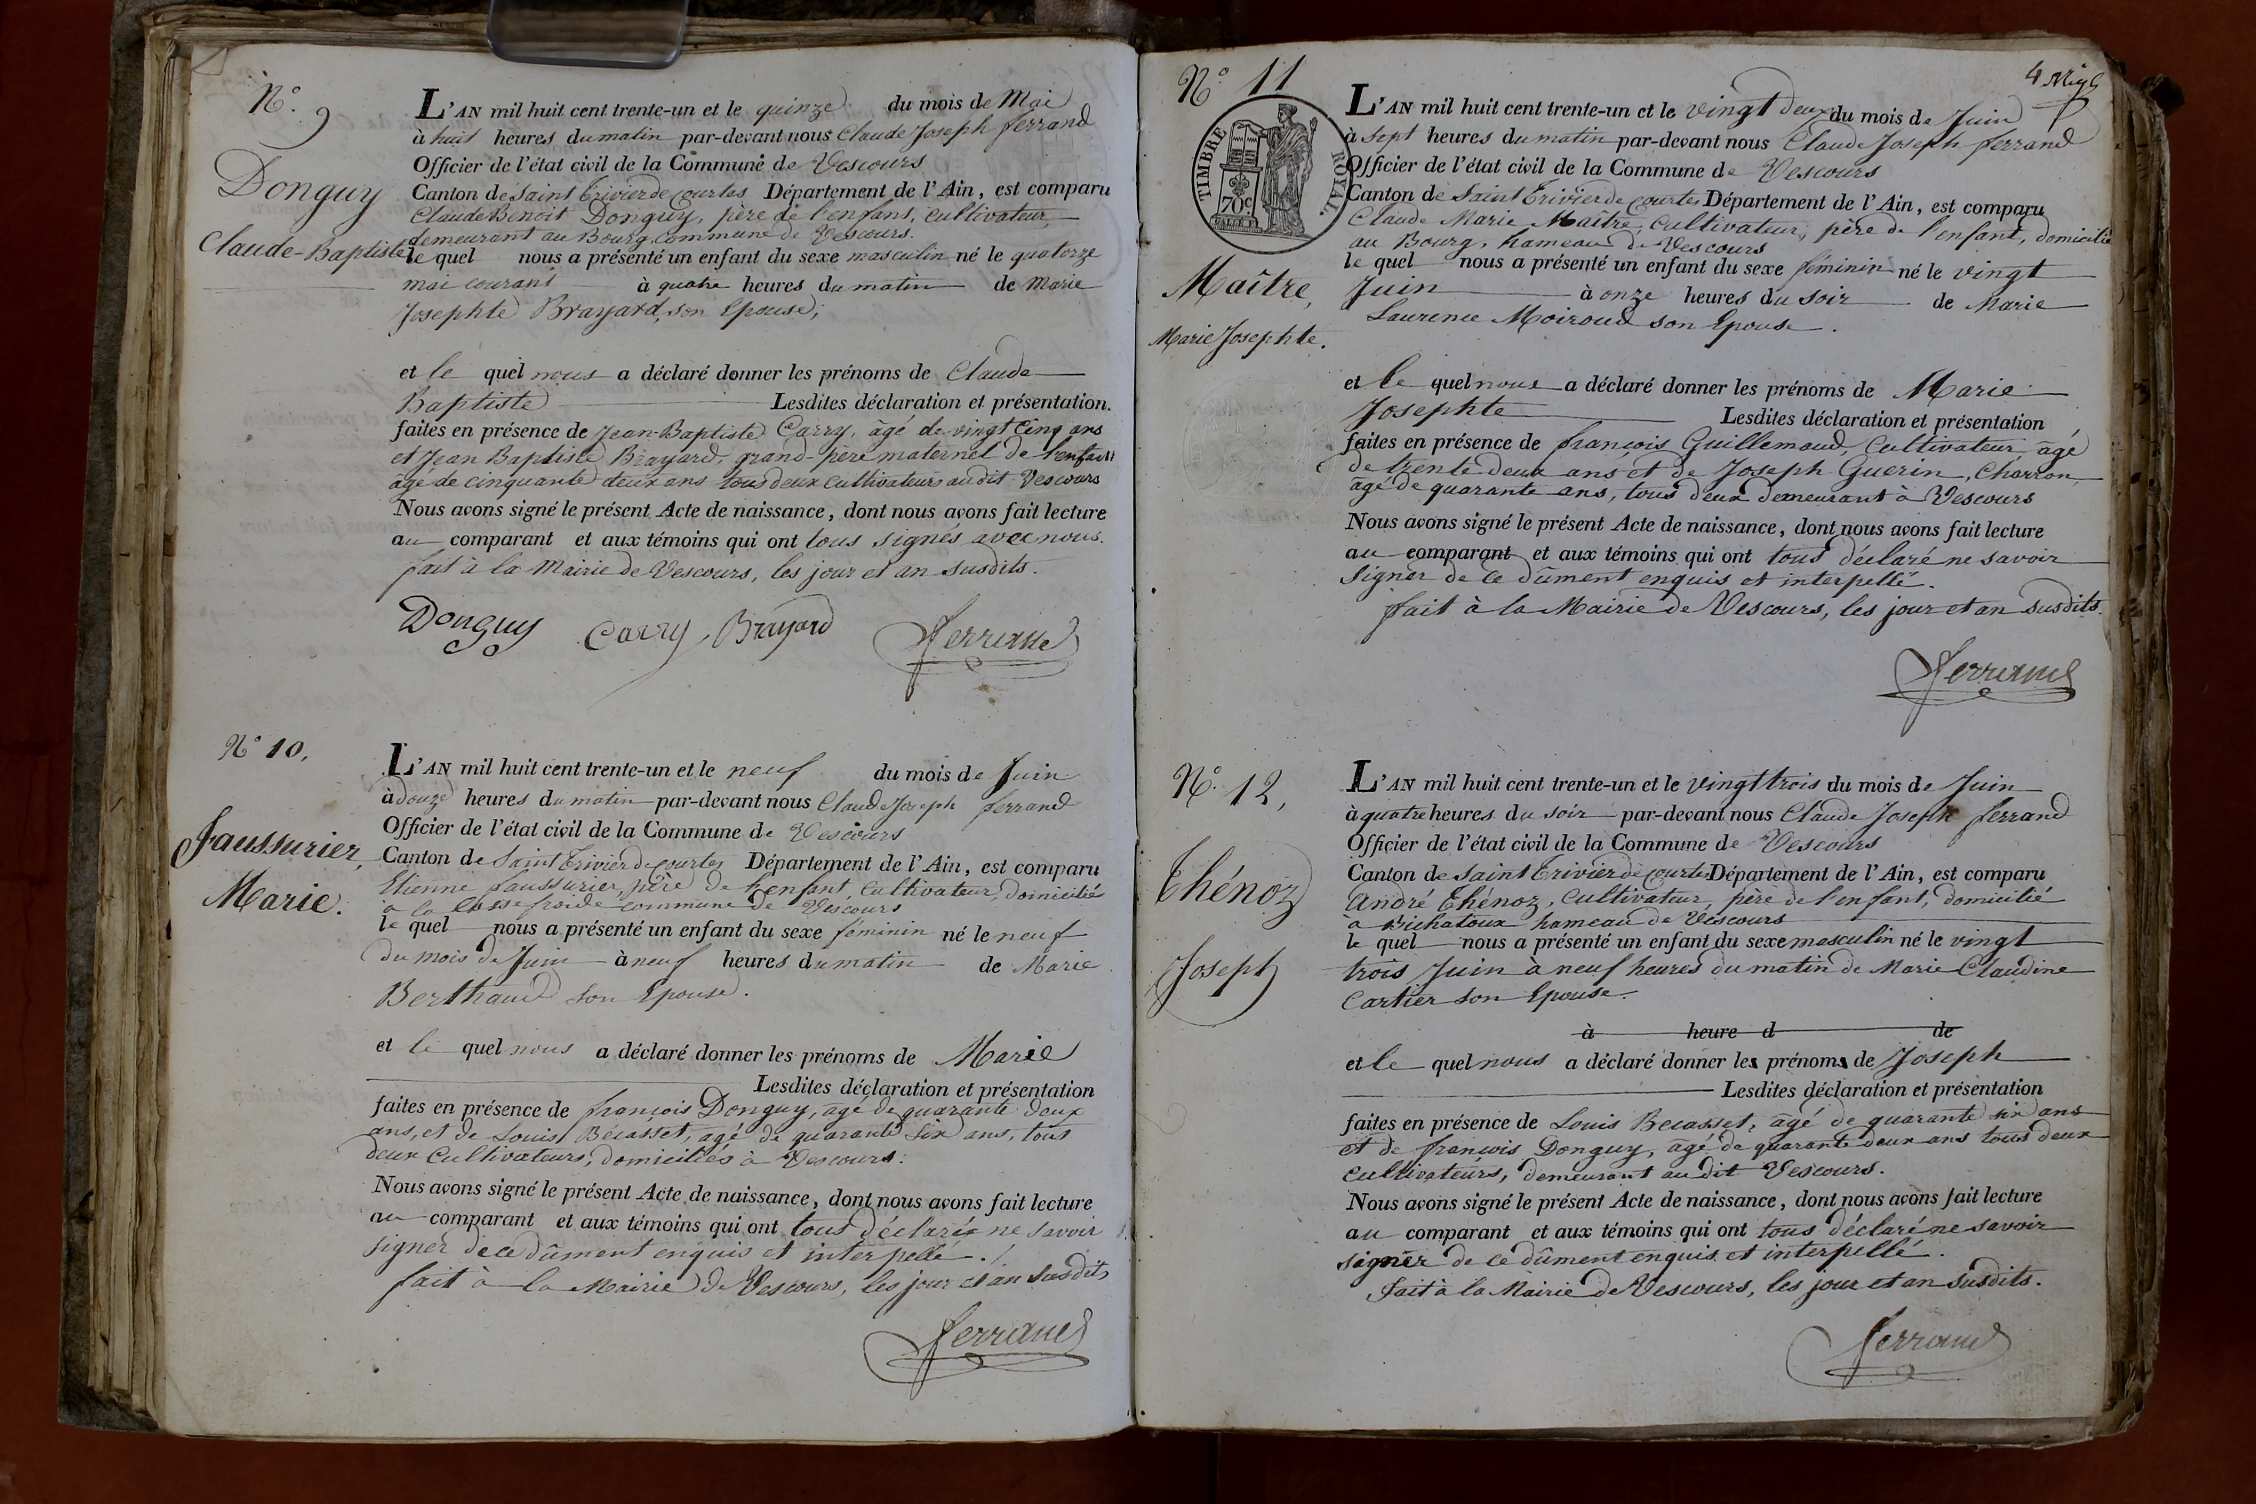 N.º 9
Donguy
Claude-Baptiste
L'AN mil huit cent trente-un et le quinze du mois de Mai
à huit heures du matin par-devant nous Claude Joseph ferrand
Officier de l'état civil de la Commune de Vescours
Canton de Saint Trivier de Courtes Département de l'Ain, est comparu
Claude Benoit Donguy, père de l'enfant, cultivateur,
demeurant au Bourg commune de Vescours.
le quel nous a présenté un enfant du sexe masculin né le quatorze
mai courant à quatre heures du matin de Marie
Josephte Brayard, son Epouse;
et le quel nous a déclaré donner les prénoms de Claude
Baptiste Lesdites déclaration et présentation.
faites en présence de Jean-Baptiste Carry, âgé de vingt cinq ans
et Jean Baptiste Brayard, grand-père maternel de l'enfant
âgé de cinquante deux ans tous deux cultivateurs audit Vescours
Nous avons signé le présent Acte de naissance, dont nous avons fait lecture
au comparant et aux témoins qui ont tous signés avec nous.
fait à la Mairie de Vescours, les jour et an susdits.
Donguy Carry Brayard ferrand
N.º 10.
Faussurier,
Marie.
L'AN mil huit cent trente-un et le neuf du mois de Juin
à douze heures du matin par-devant nous Claude Joseph ferrand
Officier de l'état civil de la Commune de Vescours
Canton de Saint Trivier de Courtes Département de l'Ain, est comparu
Etienne faussurier, père de l'enfant, cultivateur, domicilié
à la Cosse froide commune de Vescours
le quel nous a présenté un enfant du sexe féminin né le neuf
du mois de Juin à neuf heures du matin de Marie
Berthaud son Epouse.
et le quel nous a déclaré donner les prénoms de Marie
Lesdites déclaration et présentation
faites en présence de françois Donguy, agé de quarante deux
ans, et de Louis Bécasset, agé de quarante six ans, tous
deux Cultivateurs, domiciliés à Vescours.
Nous avons signé le présent Acte de naissance, dont nous avons fait lecture
au comparant et aux témoins qui ont tous déclaré ne savoir
signer de ce dûment enquis et interpellé.
fait à la Mairie de Vescours, les jour et an susdits
ferrand
N.º 11
TIMBRE ROYAL.
70c
Maître,
Marie Josephte.
L'AN mil huit cent trente-un et le vingt deux du mois de Juin
à sept heures du matin par-devant nous Claude Joseph ferrand
Officier de l'état civil de la Commune de Vescours
Canton de Saint Trivier de Courtes Département de l'Ain, est comparu
Claude Marie Maître, cultivateur, père de l'enfant, domicilié
au Bourg, hameau de Vescours
le quel nous a présenté un enfant du sexe féminin né le vingt
Juin à onze heures du soir de Marie
Laurence Moiroud son Epouse.
et le quel nous a déclaré donner les prénoms de Marie
Josephte Lesdites déclaration et présentation
faites en présence de françois Guillemaud, cultivateur, âgé
de trente deux ans et de Joseph Guerin, Charron,
âgé de quarante ans, tous deux demeurant à Vescours
Nous avons signé le présent Acte de naissance, dont nous avons fait lecture
au comparant et aux témoins qui ont tous déclaré ne savoir
signer de ce dûment enquis et interpellé.
fait à la Mairie de Vescours, les jour et an susdits.
ferrand
N.º 12,
Thénoz
Joseph
L'AN mil huit cent trente-un et le vingt trois du mois de Juin
à quatre heures du soir par-devant nous Claude Joseph ferrand
Officier de l'état civil de la Commune de Vescours
Canton de Saint Trivier de Courtes Département de l'Ain, est comparu
André Thénoz, cultivateur, père de l'enfant, domicilié
à Bichatoux hameau de Vescours
le quel nous a présenté un enfant du sexe masculin né le vingt
trois Juin à neuf heures du matin de Marie Claudine
Cartier son Epouse.
à heure d de
et le quel nous a déclaré donner les prénoms de Joseph
Lesdites déclaration et présentation
faites en présence de Louis Becasset, âgé de quarante six ans
et de françois Donguy, agé de quarante deux ans tous deux
cultivateurs, demeurant au dit Vescours.
Nous avons signé le présent Acte de naissance, dont nous avons fait lecture
au comparant et aux témoins qui ont tous déclaré ne savoir
signer de ce dûment enquis et interpellé.
fait à la Mairie de Vescours, les jour et an susdits.
ferrand